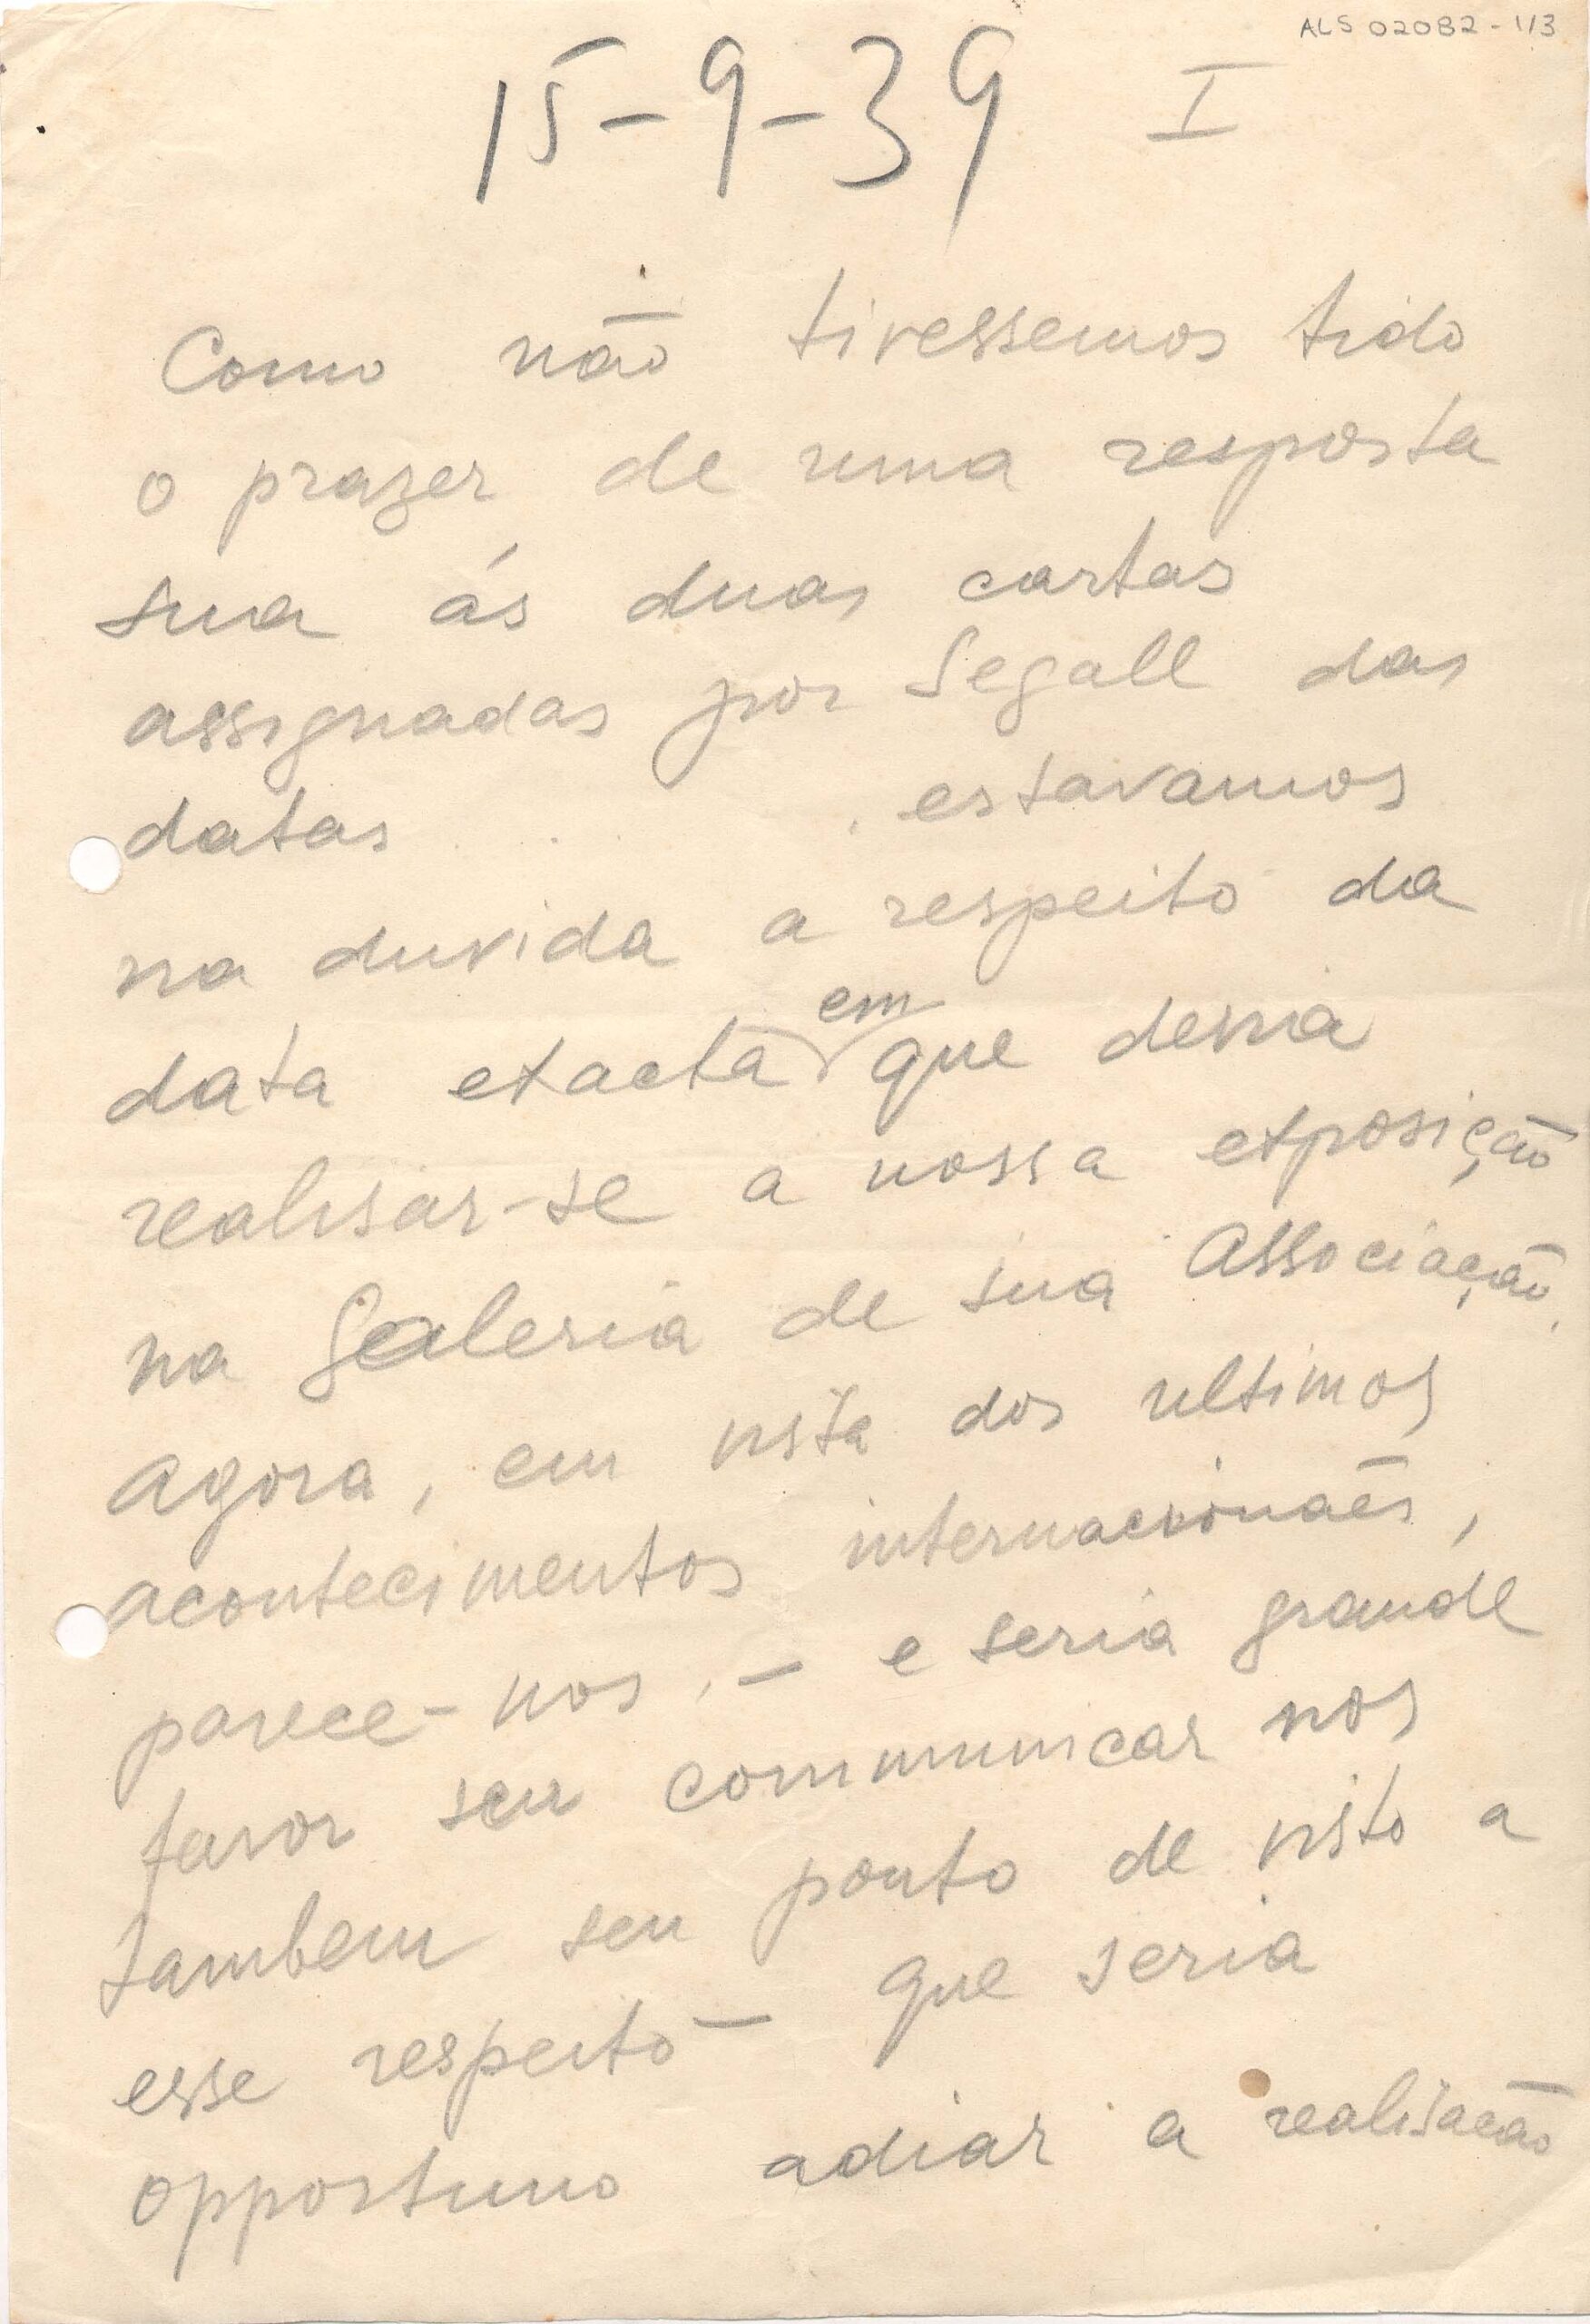 ALS 02082-1/3
15-9-39 I
Como não tivessemos tido
o prazer de uma resposta
sua ás duas cartas
assignadas por Segall das
datas . . , estavamos
na duvida a respeito da
em
data exacta que devia
realisar-se a nossa exposição
na Galeria de sua Associação.
Agora, em vista dos ultimos
acontecimentos internacionães,
parece-nos, - e seria grande
favor seu communicar nos
tambem seu ponto de visto a
esse respeito - que seria
opportuno adiar a realisacão